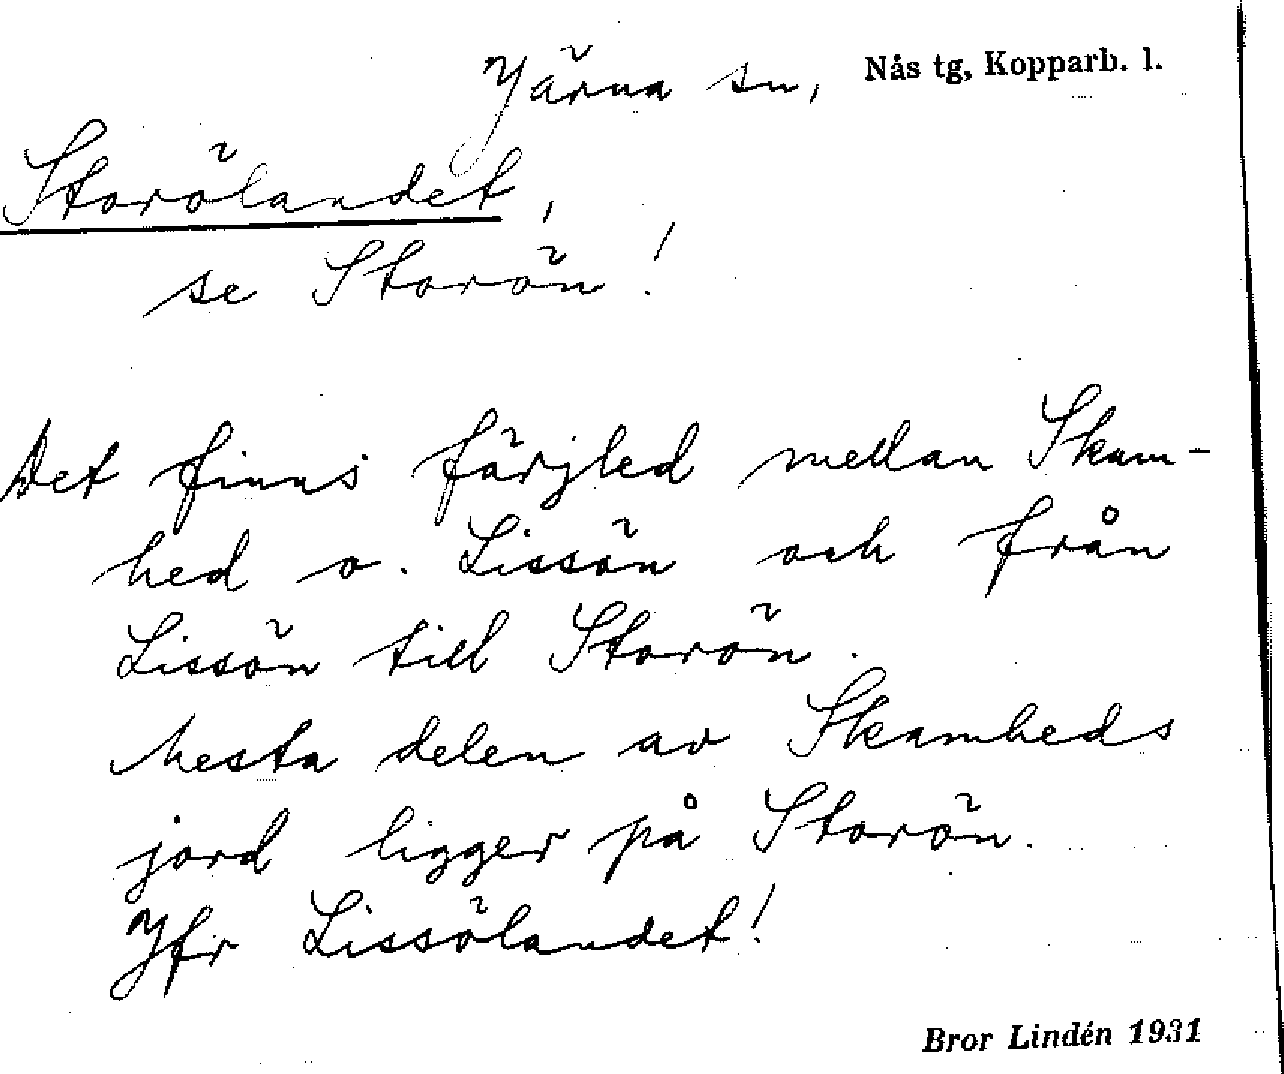 Järna sn, Nås tg, Kopparb. l.
Storölandet,
se Storön!
Det finns färjled mellan Skam-
hed o. Lissön och från
Lissön till Storön.
Mesta delen av Skamheds
jord ligger på Storön.
Jfr Lissölandet!
Bror Lindén 1931